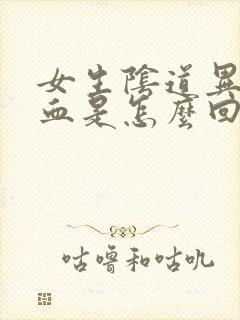 女生陰道異
血是怎麼回
咕嚕和咕叽